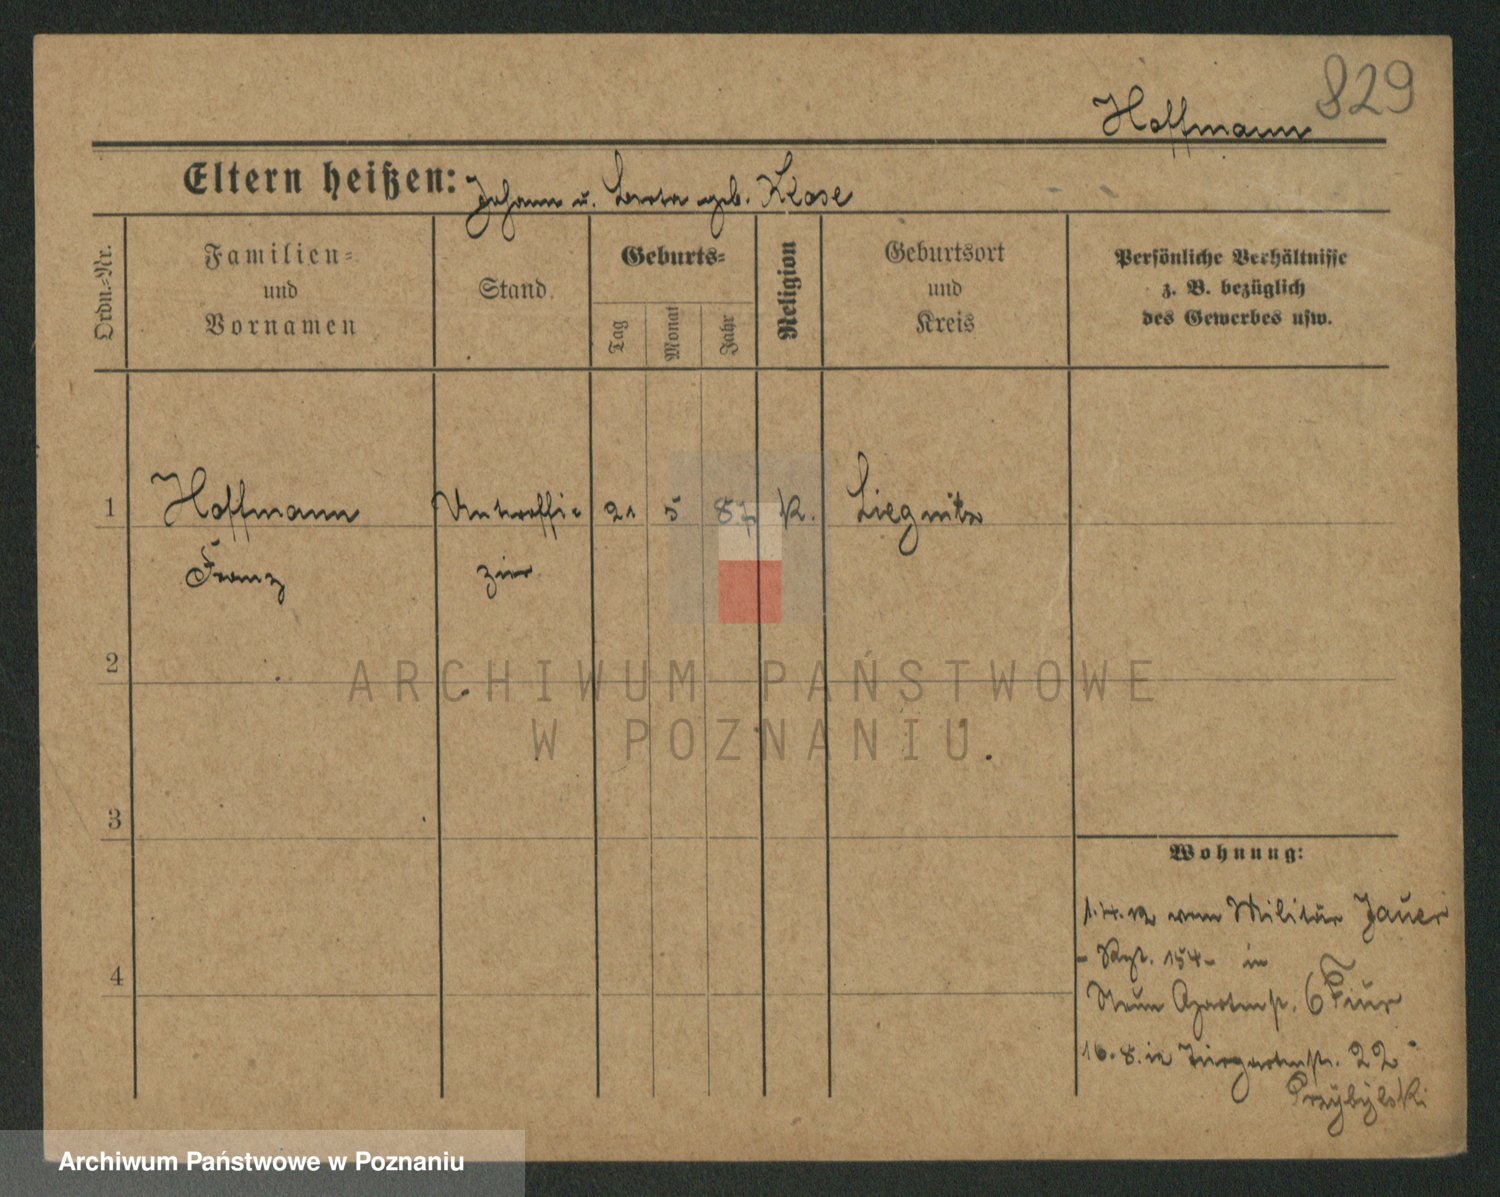 829
Hoffmann
Eltern heißen: Johann u. Berta geb. Klose
Ordn.-Nr.
Familien-
und
Vornamen
Stand
Geburts-
Tag
Monat
Jahr
Religion
Geburtsort
und
Kreis
Persönliche Verhältnisse
z. B. bezüglich
des Gewerbes usw.
1 Hoffmann Unteroffi- 21 5 87 K. Liegnitz
Franz zier
2
3
4
Wohnung:
1.4.12 vom Militär Jauer
- Rgt. 154 - in
Neue Gartenstr. 6
16.8. in Tiergartenstr. 22
Przybylski
ARCHIWUM PAŃSTWOWE
W POZNANIU
Archiwum Państwowe w Poznaniu